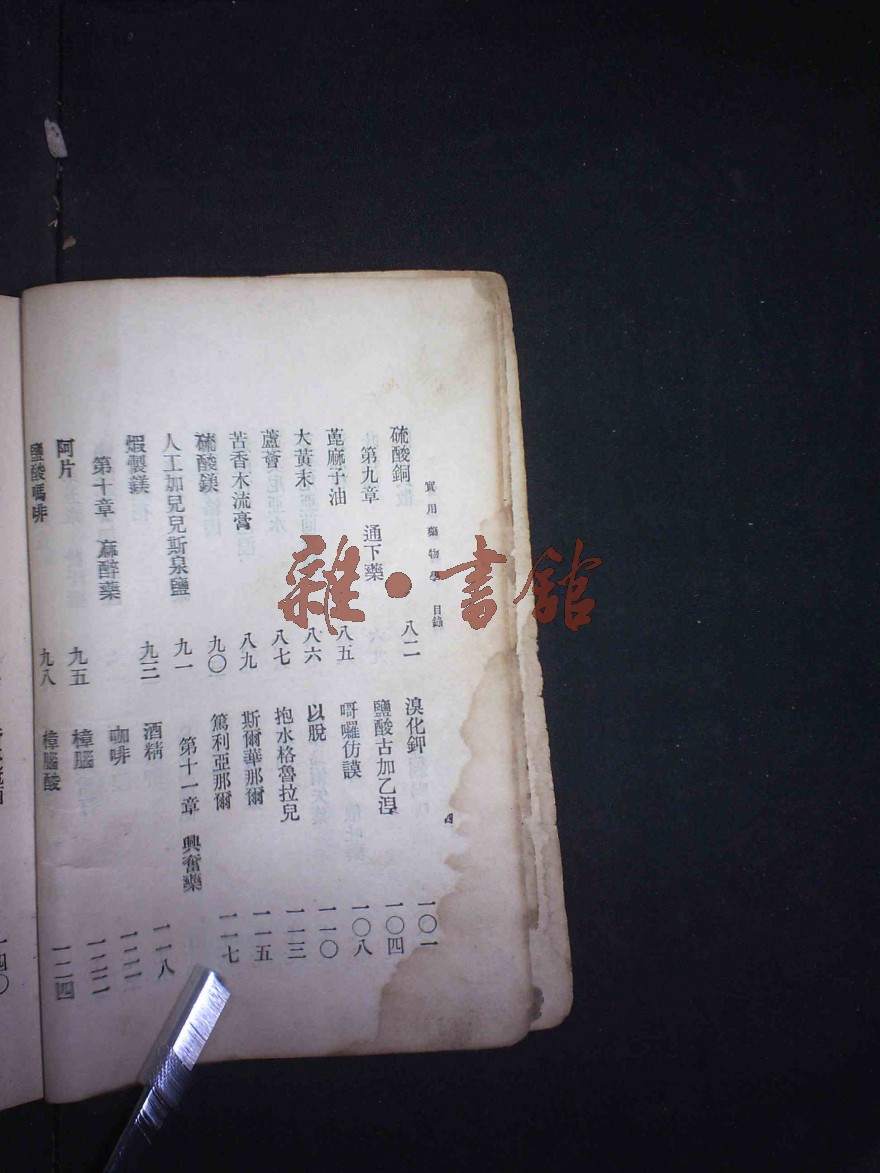 實用藥物學 目錄
四
硫酸銅 八二
第九章 通下藥
蓖麻子油 八五
大黃末 八六
蘆薈 八七
苦香木流膏 八九
硫酸鎂 九〇
人工加兒兒斯泉鹽 九一
煆製鎂 九三
第十章 麻醉藥
阿片 九五
鹽酸嗎啡 九八
溴化鉀 一〇一
鹽酸古加乙湼 一〇四
哥囉仿謨 一〇八
以脫 一一〇
抱水格魯拉兒 一一三
斯爾華那爾 一一五
篤利亞那爾 一一七
第十一章 興奮藥
酒精 一一八
咖啡
樟腦 一二二
樟腦酸 一二四
一四〇
雜·書館